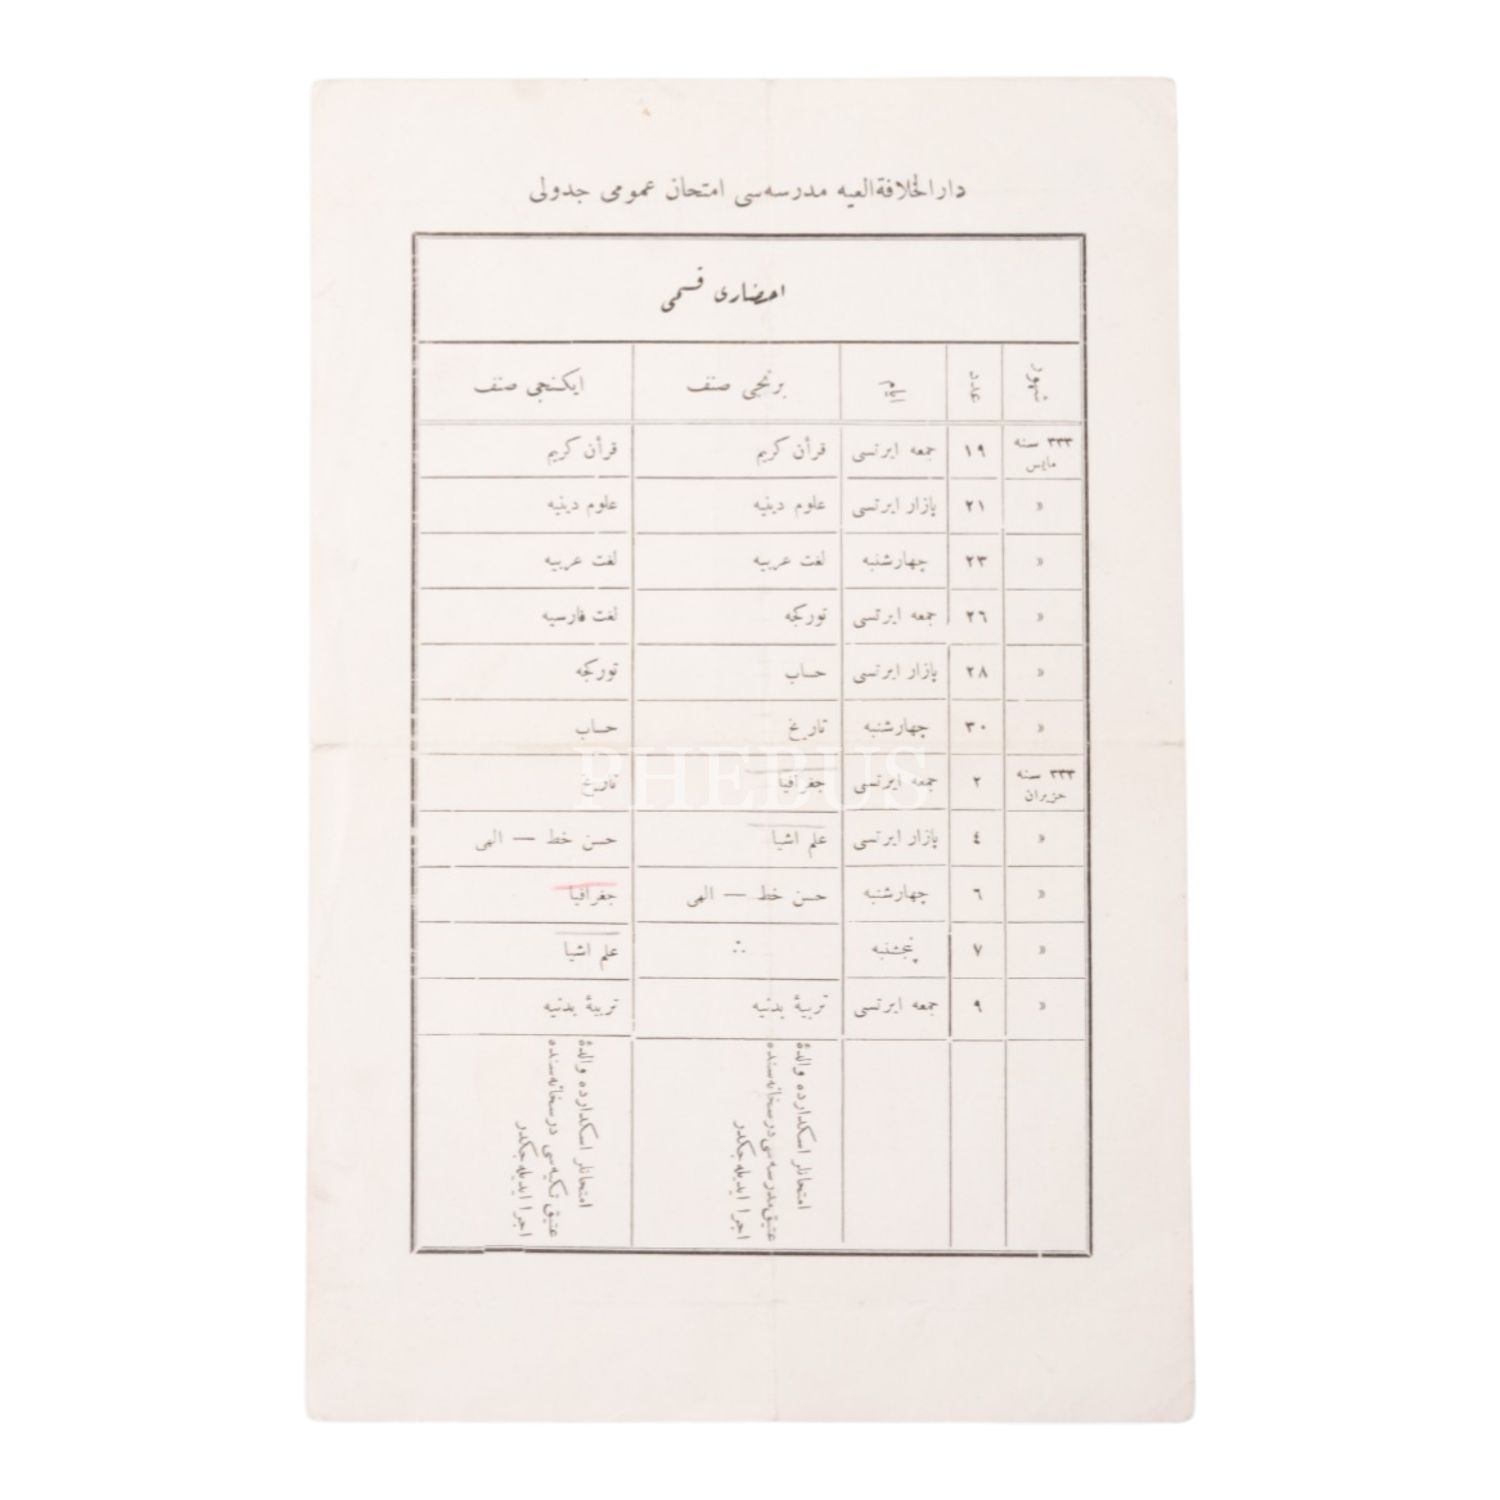 دار الخلافة العليه مدرسه‌سی امتحان عمومی جدولی
احضاری قسمی
شهور عدد ایام برنجی صنف ایکنجی صنف
٣٣٣ سنه مایس ١٩ جمعه ایرتسی قرأن کریم قرأن کریم
» ٢١ پازار ایرتسی علوم دینیه علوم دینیه
» ٢٣ چهارشنبه لغت عربیه لغت عربیه
» ٢٦ جمعه ایرتسی تورکجه لغت فارسیه
» ٢٨ پازار ایرتسی حساب تورکجه
» ٣٠ چهارشنبه تاریخ حساب
٣٣٣ سنه حزیران ٢ جمعه ایرتسی جغرافیا تاریخ
» ٤ پازار ایرتسی علم اشیا حسن خط — الهی
» ٦ چهارشنبه حسن خط — الهی جغرافیا
» ٧ پنجشنبه ∴ علم اشیا
» ٩ جمعه ایرتسی تربیهٔ بدنیه تربیهٔ بدنیه
امتحانلر اسکدارده والدهٔ
عتیق مدرسه‌سی درسخانه‌سنده
اجرا ایدیله‌جکدر
امتحانلر اسکدارده والدهٔ
عتیق تکیه‌سی درسخانه‌سنده
اجرا ایدیله‌جکدر
PHEBUS